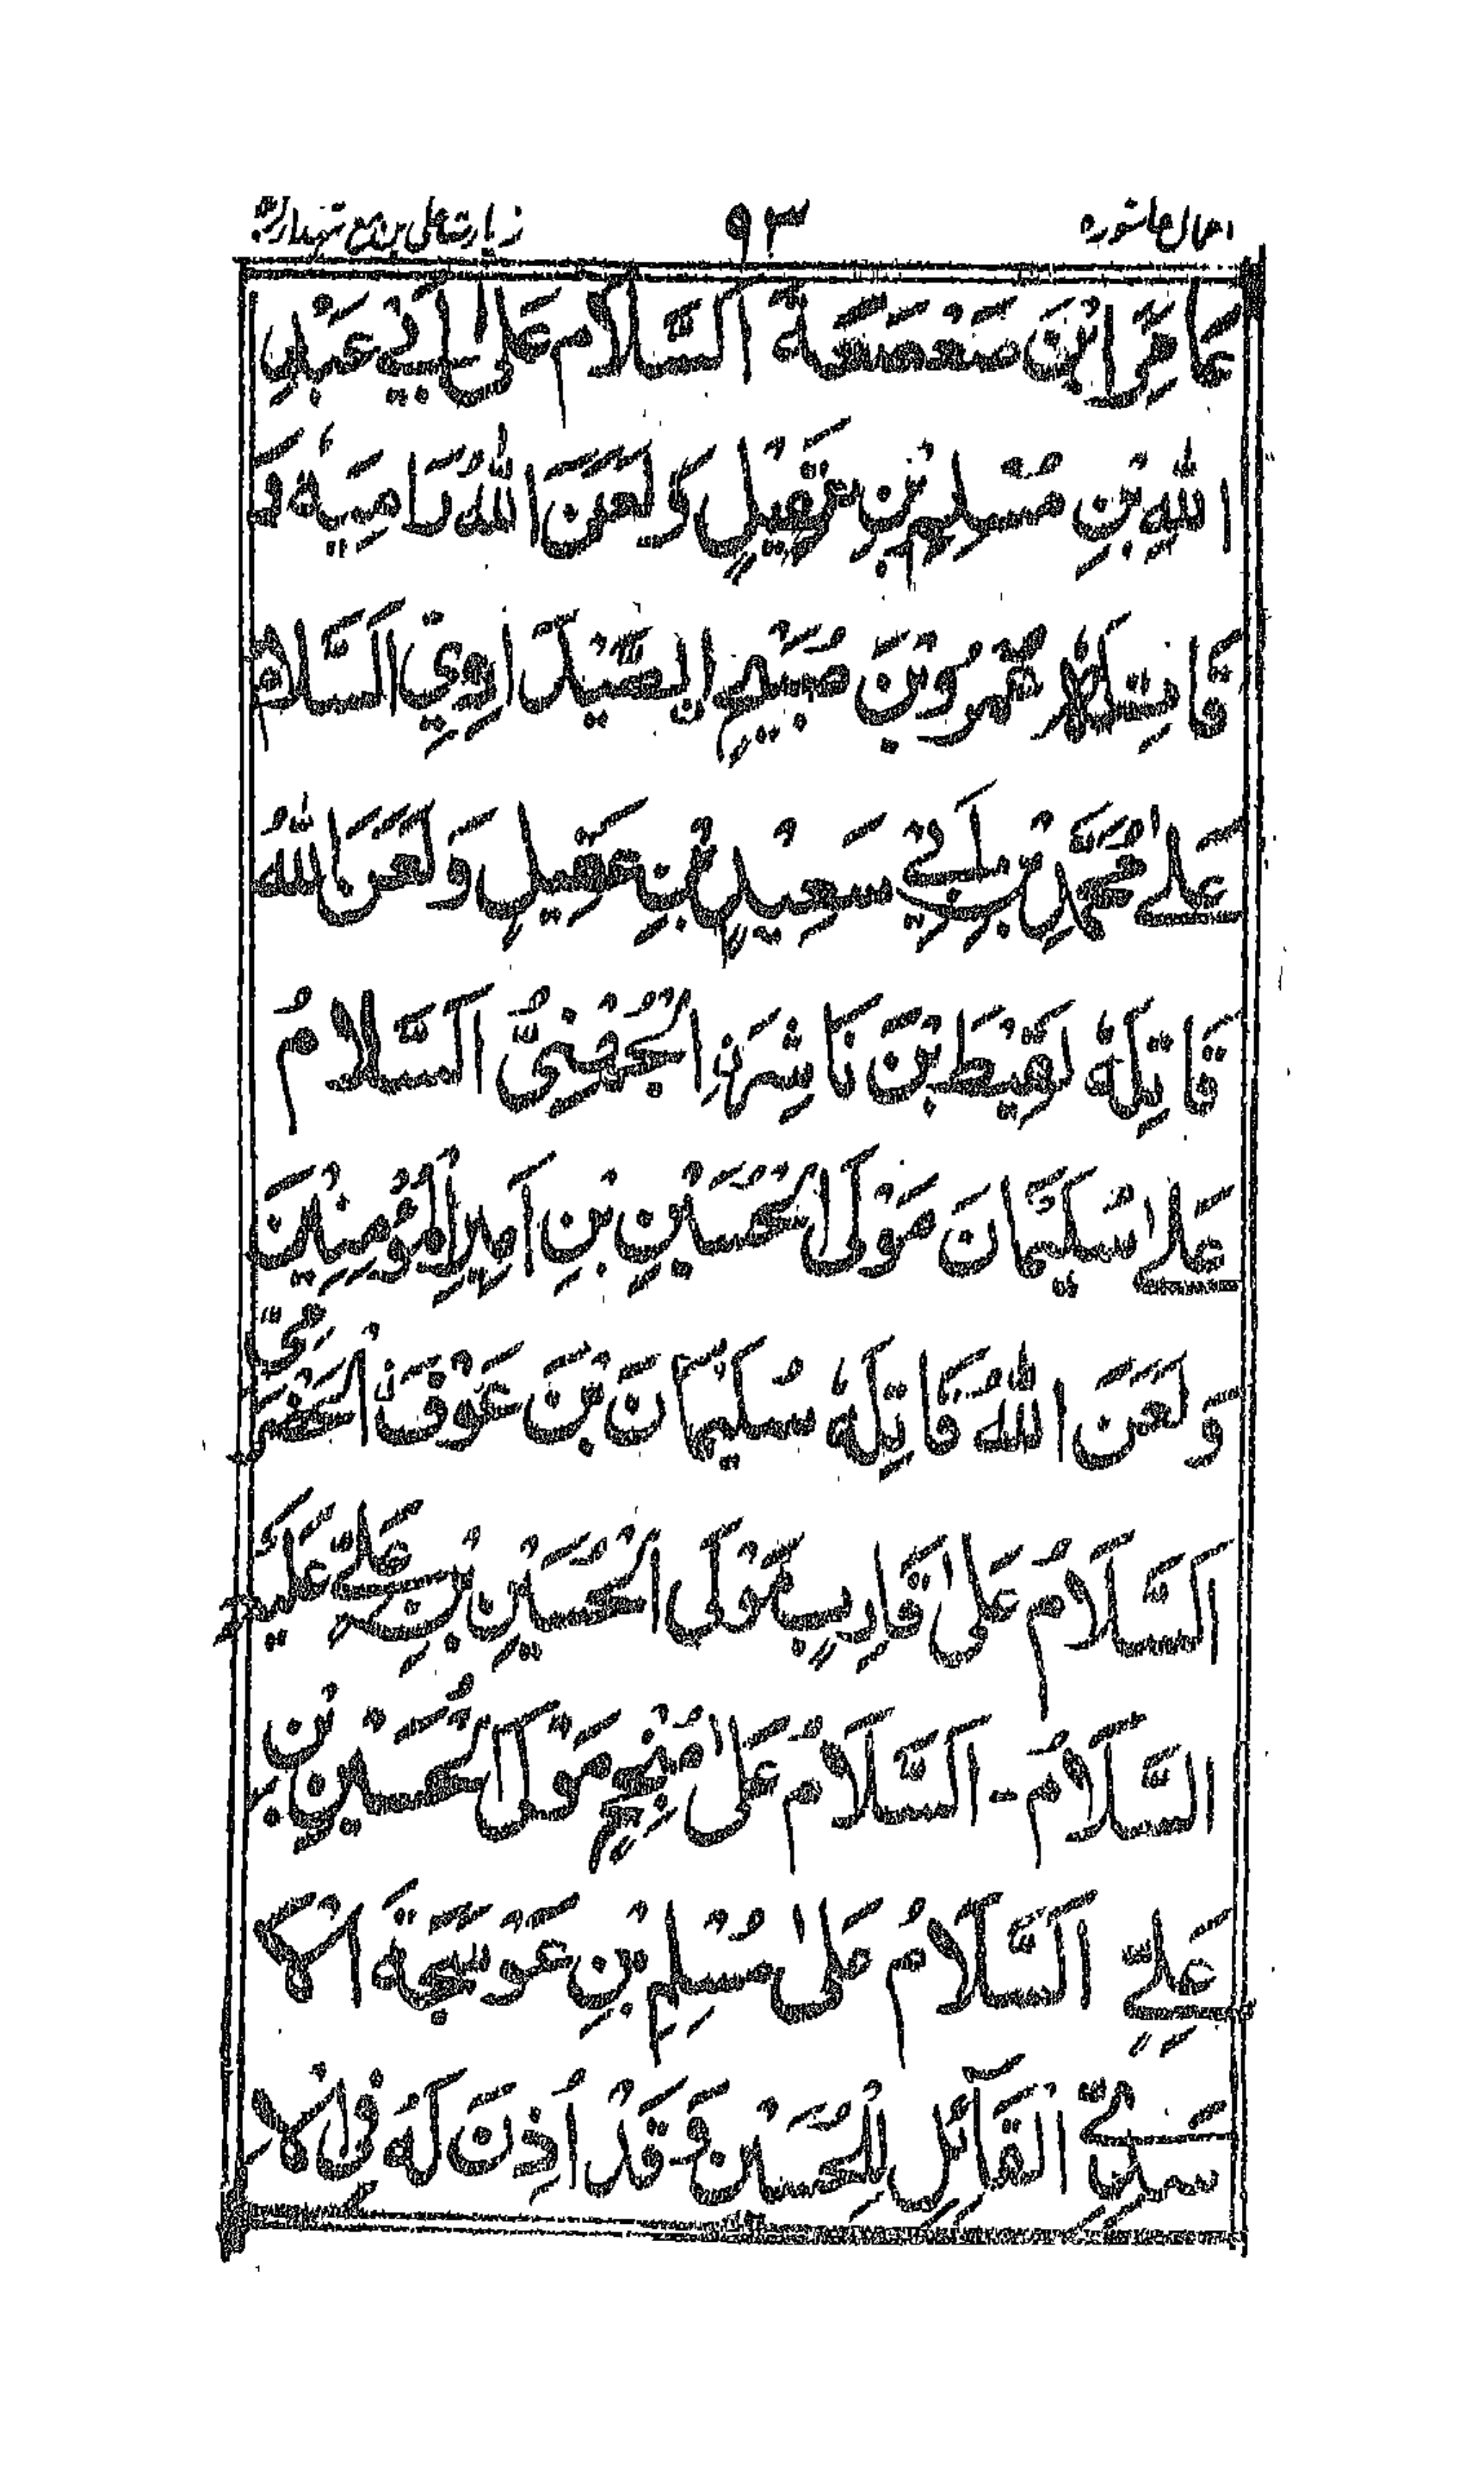 اعمال عاشوره ۹۳ زیارت علی بن مع شهدا
عَامِرَ ابْنَ صَعْصَعَةَ اَلسَّلَامُ عَلٰى اَبِيْ عَبْدِ
اللهِ بْنِ مُسْلِمِ بْنِ عَقِيْلٍ وَلَعَنَ اللهُ رَامِيَهٗ وَ
قَاتِلَهٗ عَمْرَو بْنَ صُبَيْحِ الصَّيْدَاوِيَّ اَلسَّلَامُ
عَلٰے مُحَمَّدِ بْنِ اَبِيْ سَعِيْدِ بْنِ عَقِيْلٍ وَلَعَنَ اللهُ
قَاتِلَهٗ لَقِيْطَ بْنَ نَاشِرَةِ الْجُهَنِيَّ اَلسَّلَامُ
عَلٰے سُلَيْمَانَ مَوْلَى الْحُسَيْنِ بْنِ اَمِيْرِ الْمُؤْمِنِيْنَ
وَلَعَنَ اللهُ قَاتِلَهٗ سُلَيْمَانَ بْنَ عَوْفٍ الْحَضْرَمِيَّ
اَلسَّلَامُ عَلٰى قَارِبٍ مَوْلَى الْحُسَيْنِ بْنِ عَلِيٍّ عَلَيْهِ
السَّلَامُ - اَلسَّلَامُ عَلٰى مُنْجِحٍ مَوْلَى الْحُسَيْنِ بْنِ
عَلِيٍّ اَلسَّلَامُ عَلٰى مُسْلِمِ بْنِ عَوْسَجَةَ الْاَ
سَدِيِّ الْقَآئِلِ لِلْحُسَيْنِ وَقَدْ اُذِنَ لَهٗ فِى الْاِ